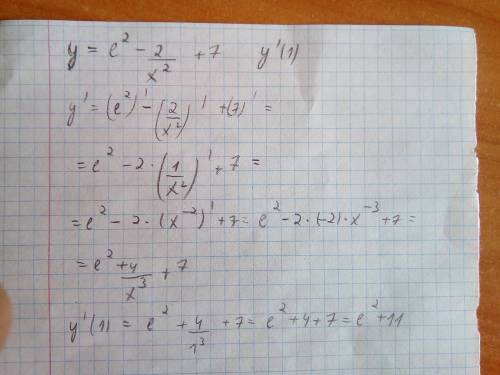 y = e² - 2/x² + 7 y'(1)
y' = (e²)' - (2/x²)' + (7)' =
= e² - 2 · (1/x²)' + 7 =
= e² - 2 · (x⁻²)' + 7 = e² - 2 · (-2) · x⁻³ + 7 =
= e² + 4/x³ + 7
y'(1) = e² + 4/1³ + 7 = e² + 4 + 7 = e² + 11